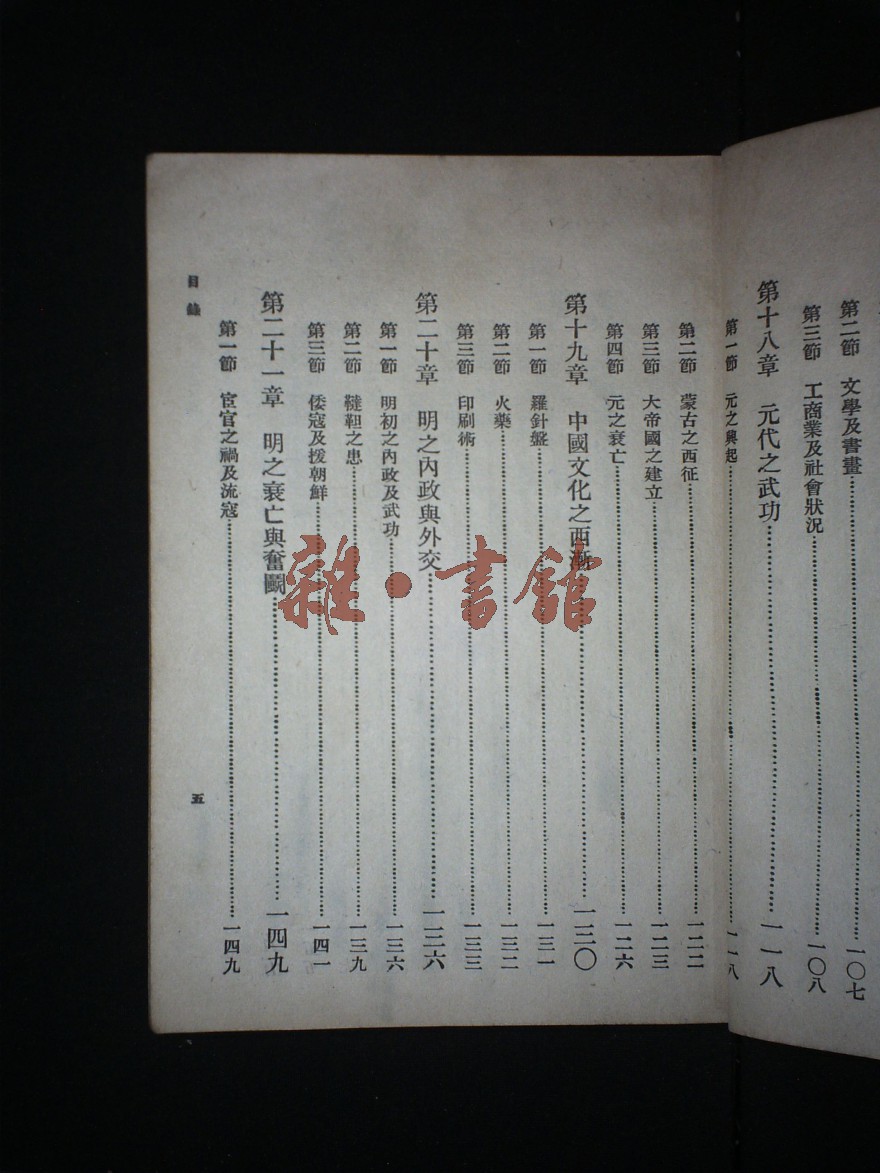 第二節　文學及書畫……一〇七
第三節　工商業及社會狀況……一〇八
第十八章　元代之武功……一一八
第一節　元之興起……一一八
第二節　蒙古之西征……一二二
第三節　大帝國之建立……一二三
第四節　元之衰亡……一二六
第十九章　中國文化之西漸……一三〇
第一節　羅針盤……一三一
第二節　火藥……一三二
第三節　印刷術……一三三
第二十章　明之內政與外交……一三六
第一節　明初之內政及武功……一三六
第二節　韃靼之患……一三九
第三節　倭寇及援朝鮮……一四一
第二十一章　明之衰亡與奮鬭……一四九
第一節　宦官之禍及流寇……一四九
目錄
五
雜·書館